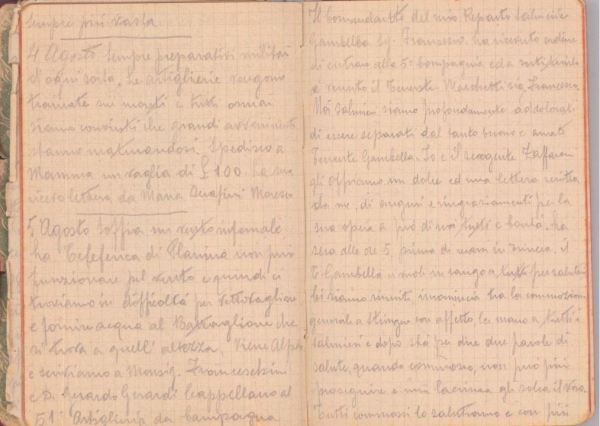 sempre più vasta
4 Agosto Sempre preparativi militari
d'ogni sorta. Le artiglierie vengono
trainate su monti e tutti ormai
siamo convinti che grandi avvenimenti
stanno maturandosi. Spedisco a
Mamma un vaglia di £ 100.
lettera da Maria Serafini
5 Agosto Soffia un vento infernale
la Teleferica di non può
funzionare pel vento e quindi ci
troviamo in difficoltà per vettovagliare
e fornire acqua al Battaglione che
si trova a quell'altezza. Viene
e scriviamo a Monsig. Franceschini
e D. Gerardo Gerardi Cappellano al
51° Artiglieria da Campagna
Il Comandante del mio Reparto Salmerie
Gambella Sig. Francesco, ha ricevuto ordine
di entrare alla 5ª Compagnia ed a sostituirlo
è venuto il Tenente Marchetti Sig. Francesco.
Noi salmeri siamo profondamente addolorati
di essere separati dal tanto buono e amato
Tenente Gambella. Io e il sergente Zaffaroni
gli offriamo un dolce ed una lettera scritta
da me, di auguri e ringraziamenti per la
sua opera a prò di noi tutti e bontà. La
sera alle ore 5, prima di in trincea, il
T. Gambella ci vuol tutti per salutarci
Lei siamo riuniti, incomincia tra la commozione
generale a stringere con affetto la mano a tutti i
salmeri e dopo due parole di
salute, quando commosso, non può più
proseguire e una lacrima gli solca il viso.
Tutti commossi lo salutiamo e con più